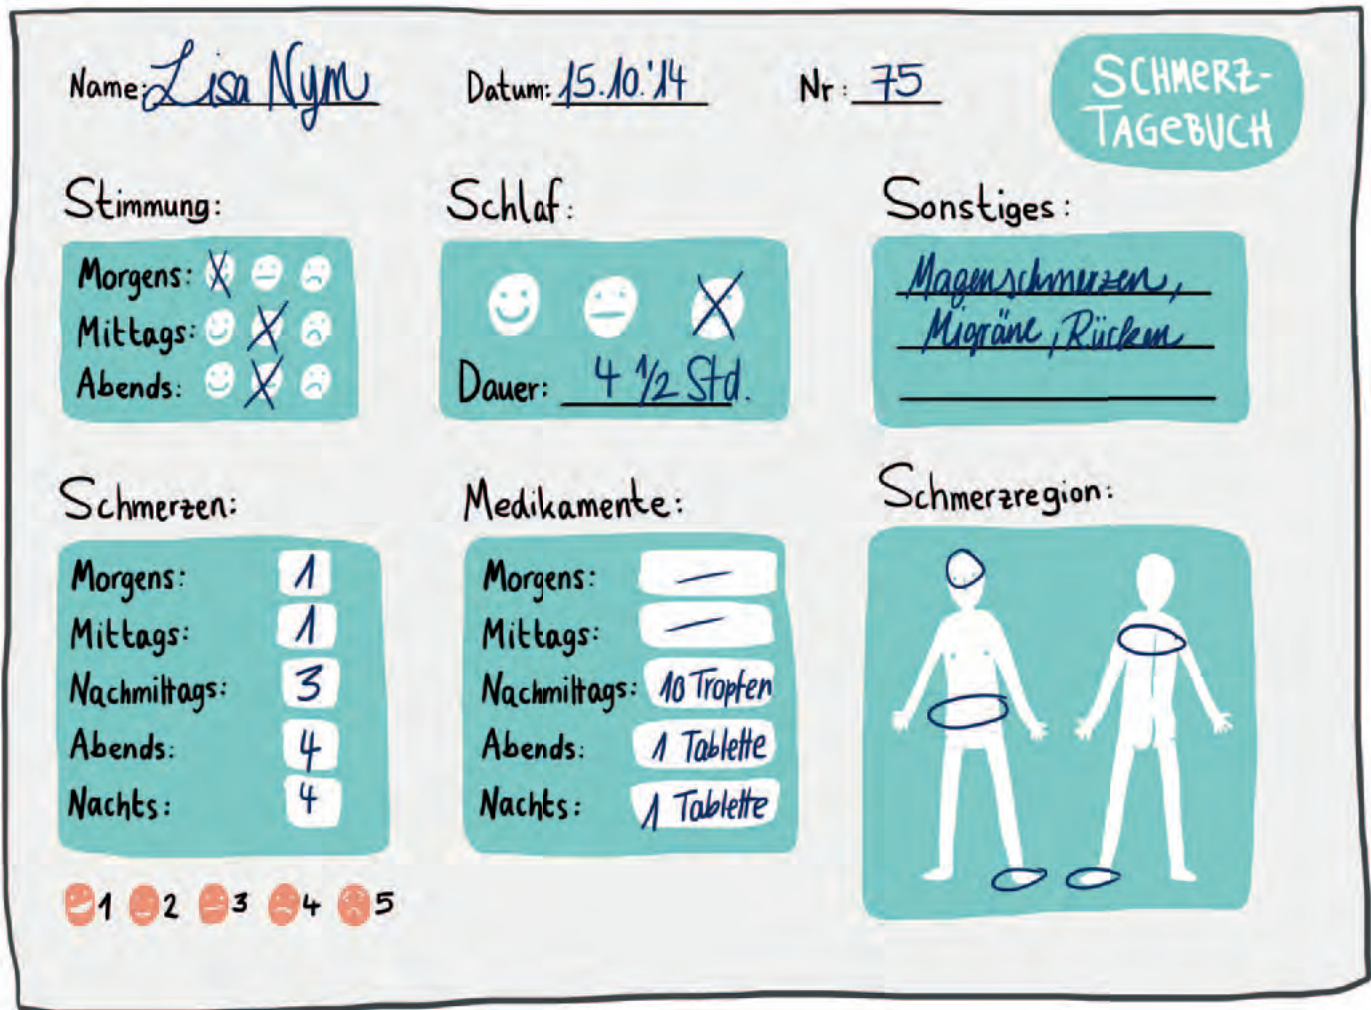 Name: Lisa Nym
Datum: 15.10.'14
Nr: 75
SCHMERZ-
TAGEBUCH
Stimmung:
Morgens:
Mittags:
Abends:
Schlaf:
Dauer: 4 1/2 Std.
Sonstiges:
Magenschmerzen,
Migräne, Rücken
Schmerzen:
Morgens: 1
Mittags: 1
Nachmittags: 3
Abends: 4
Nachts: 4
1 2 3 4 5
Medikamente:
Morgens: —
Mittags: —
Nachmittags: 10 Tropfen
Abends: 1 Tablette
Nachts: 1 Tablette
Schmerzregion: